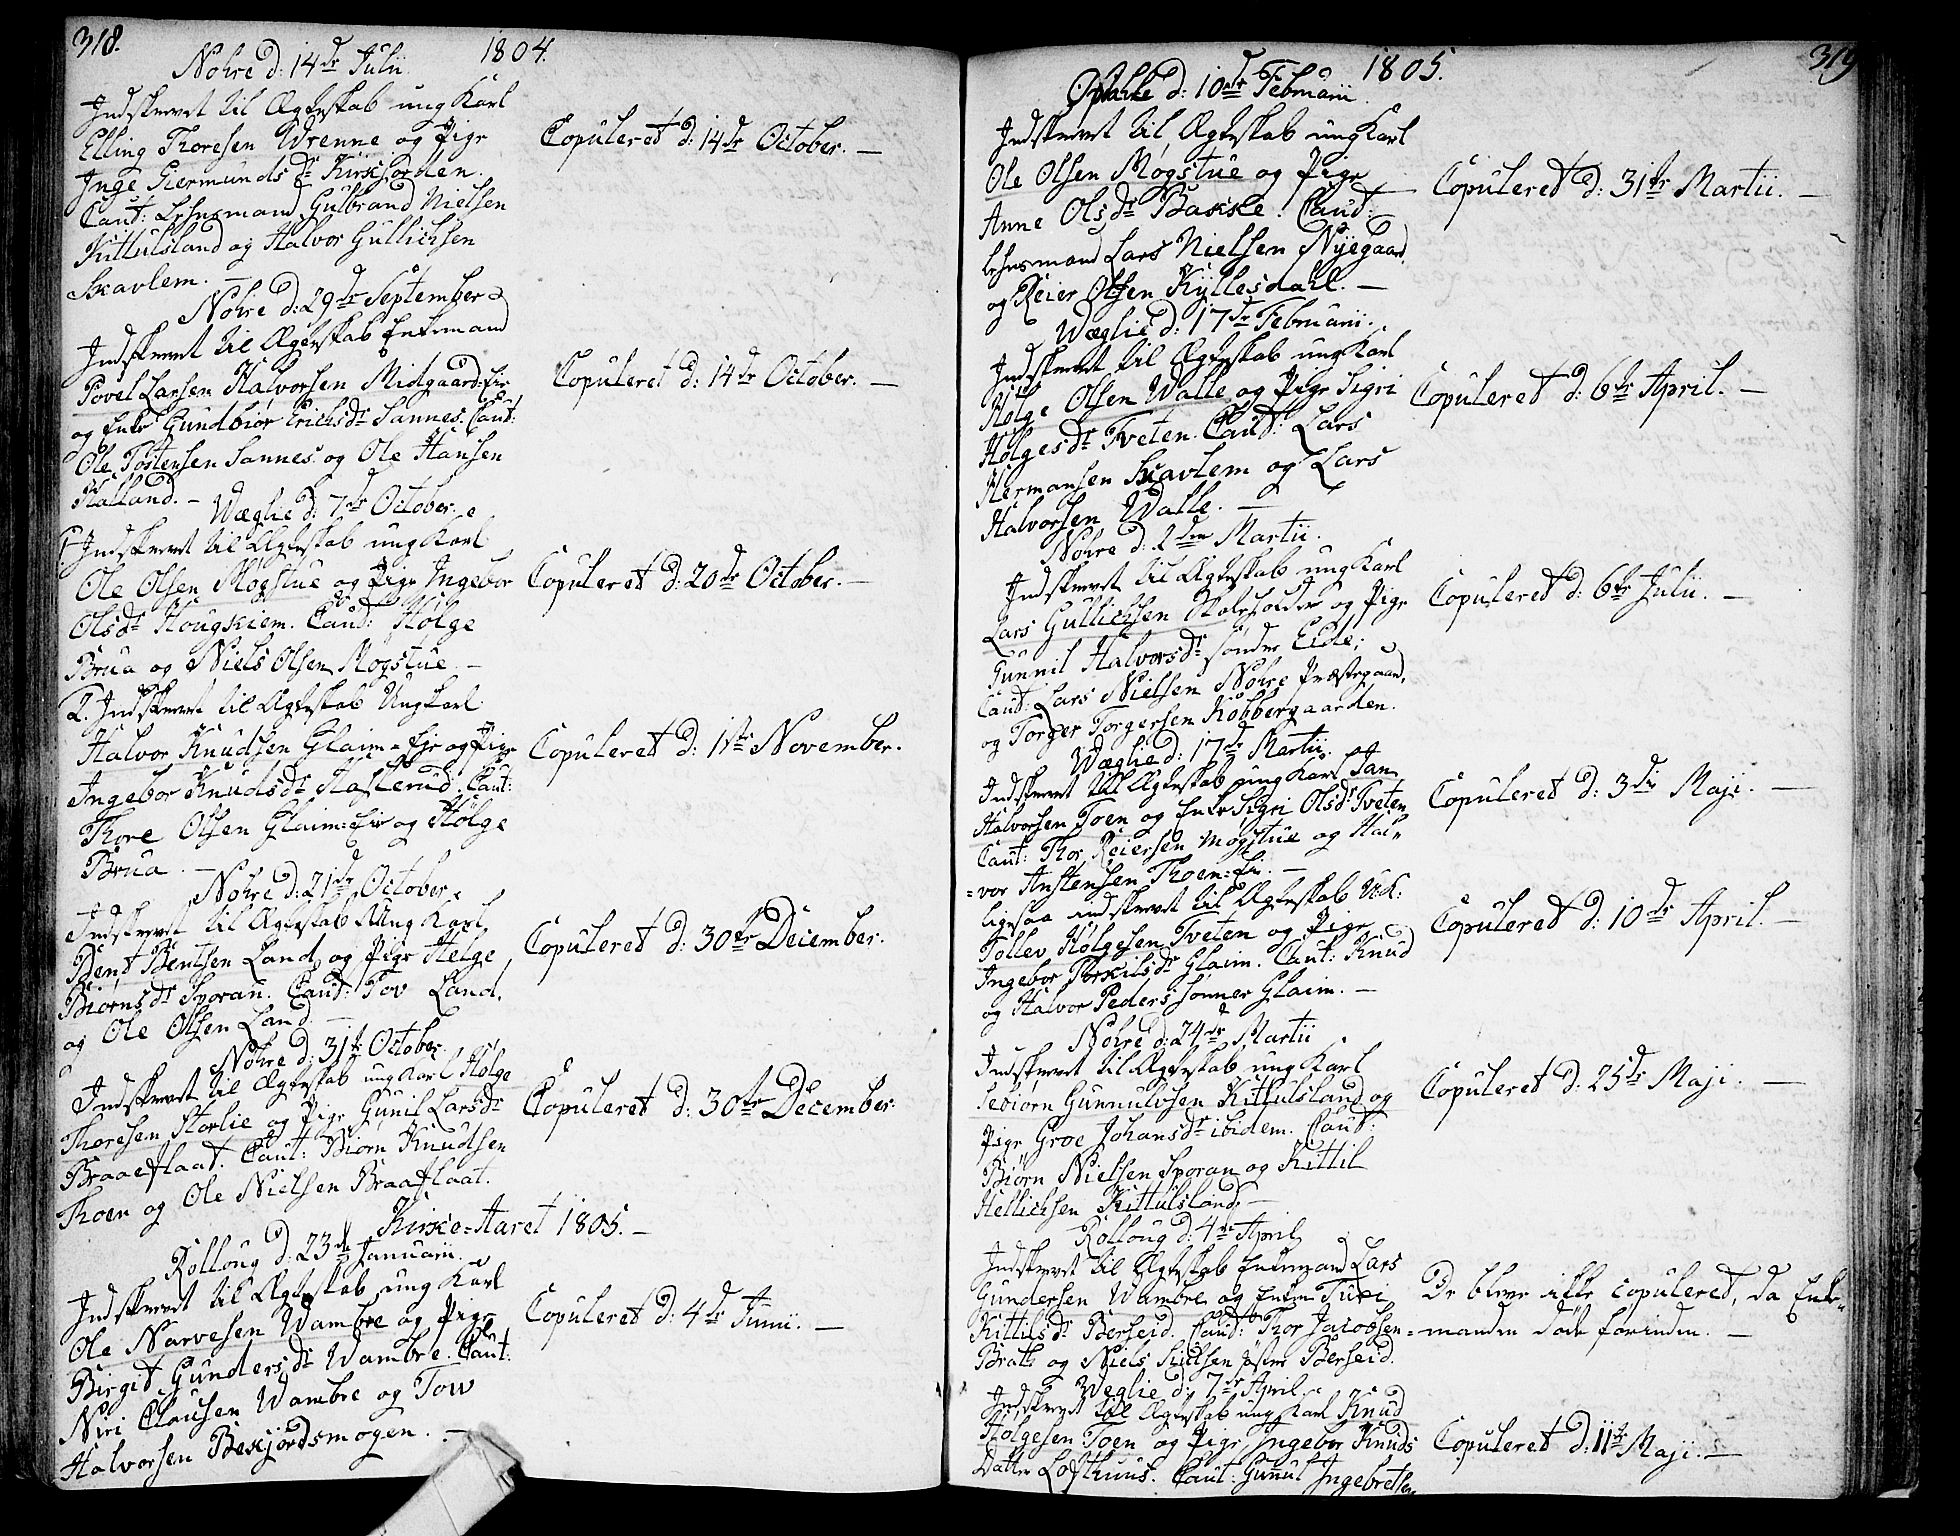 318.
1804.
Nøhre d: 14de Julii.
Indskrevet til Ægteskab ung Karl
Elling Thoresen Wrenne og Pige
Inge Giermunds Dr Kirkjorden.
Caut: Lehnsmand Gulbrand Nielsen
Kittulsland og Halvor Gullichsen
Skavlem. —
Copuleret d: 14de October. —
Nøhre d: 29de September
Indskrevet til Ægteskab Enkemand
Povel Larsen Halvorsen Midgaard=Eie
og Enke Gundbiør Erichsdr Sannes. Caut:
Ole Tostensen Sannes og Ole Hansen
Halland. —
Copuleret d: 14de October. —
Wæglie d: 7de October.
1. Indskrevet til Ægteskab ung Karl
Ole Olsen Møgstue og Pige Ingebor
Olsdr Hougkiem. Caut: Holge
Brua og Niels Olsen Møgstue. —
Copuleret d: 20de October. —
2. Indskrevet til Ægteskab Ung Karl
Halvor Knudsen Glaim=Eje og Pige
Ingebor Knudsdr Haslerud. Caut:
Thore Olsen Glaim=Eie og Holge
Brua. —
Copuleret d: 1ste November.
Nøhre d: 21de October.
Indskrevet til Ægteskab Ung Karl
Bent Bentsen Land og Pige Helge
Biørnsdr Sporan. Caut: Tov Land,
og Ole Olsen Land. —
Copuleret d: 30te December.
Nøhre d: 31te October.
Indskrevet til Ægteskab ung Karl Holge
Thoresen Storlie og Pige Gunil Larsdr
Braaeflaat. Caut: Biørn Knudsen
Thoen og Ole Nielsen Braaflaat.
Copuleret d: 30te December.
Kirke=Aaret 1805. —
Rolloug d: 23de Januarii.
Indskrevet til Ægteskab ung Karl
Ole Narvesen Wambre og Pige
Birgit Gundersdr Wambre. Caut:
Niri Clausen Wambre og Tow
Halvorsen Beskjordsmogen. —
Copuleret d: 4de Junii. —
1805.
319
d: 10de Februarii.
Indskrevet til Ægteskab ung Karl
Ole Olsen Møgstue og Pige
Anne Olsdr Bakke. Caut:
Lehnsmand Lars Nielsen Nyegaard,
og Reier Olsen Kyllesdahl. —
Copuleret d: 31te Martii. —
Wæglie d: 17de Februarii.
Indskrevet til Ægteskab ung Karl
Holge Olsen Walle og Pige Sigri
Holgesdr Tveten. Caut: Lars
Hermansen Skavlem og Lars
Halvorsen Walle. —
Copuleret d: 6te April. —
Nøhre d: 2den Martii.
Indskrevet til Ægteskab ung Karl
Lars Gullichsen Skoleholder og Pige
Gunnil Halvorsdr Sønder Eide;
Caut: Lars Nielsen Nøhre Præstegaard,
og Torger Torgersen Kobbergaarden.
Copuleret d: 6te Julii. —
Wæglie d: 17de Martii.
Indskrevet til Ægteskab ung Karl Jan
Halvorsen Toen og Enke Sigri Olsdr Tveten,
Caut: Thor Reiersen Møgstue og Hal„
=vor Anstensen Thoen=Eie. —
Copuleret d: 3die Maji. —
ligesaa indskrevet til Ægteskab U:K:
Tollev Holgesen Tveten og Pige
Ingebor Torkilsdr Glaim. Caut: Knud
og Halvor Peders Sønner Glaim. —
Copuleret d: 10de April. —
Nøhre d: 24de Martii
Indskrevet til Ægteskab ung Karl
Sebiørn Gunnulvsen Kittulsland og
Pige Groe Johansdr ibidem. Caut:
Biørn Nielsen Sporan og Kittil
Hellichsen Kittulsland —
Copuleret d: 25de Maji. —
Rolloug d: 4de April
Indskrevet til Ægteskab Enkemand Lars
Gundersen Wambre og Enken Turi
Kittilsdr Berseid. Caut: Thor Jacobsen
Brath og Niels Sielsen Berseid.
De bleve ikke copuleret, da Enke„
=manden døde forinden. —
Weglie d: 7de April.
Indskrevet til Ægteskab ung Karl Knud
Holgesen Toen og Pige Ingebor Knuds
Datter Lofthuus. Caut: Gunul Ingebretsen
Copuleret d: 11te Maji. —